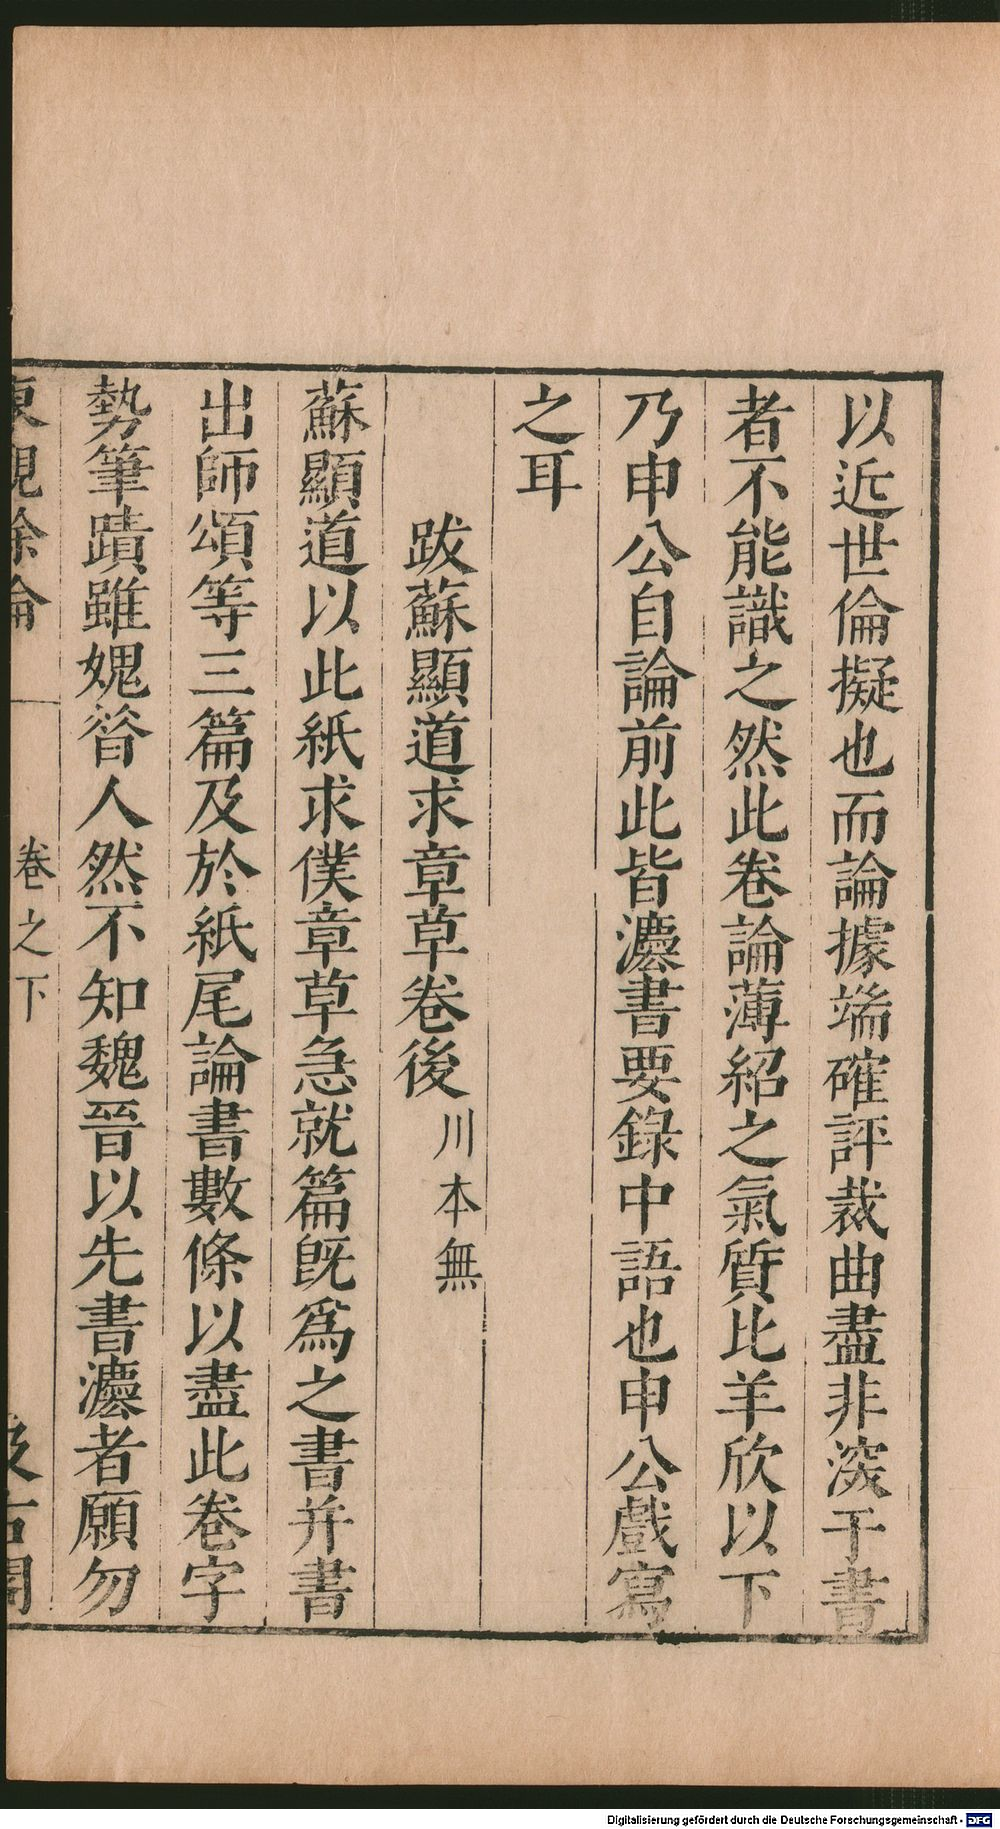 以近世倫擬也而論據端確評裁曲盡非深于書
者不能識之然此卷論薄紹之氣質比羊欣以下
乃申公自論前此皆灋書要錄中語也申公戲寫
之耳
跋蘇顯道求章草卷後川本無
蘇顯道以此紙求僕章草急就篇既爲之書并書
出師頌等三篇及於紙尾論書數條以盡此卷字
勢筆蹟雖媿昝人然不知魏晉以先書灋者願勿
東觀餘論 卷之下 汲古閣
Digitalisierung gefördert durch die Deutsche Forschungsgemeinschaft - DFG